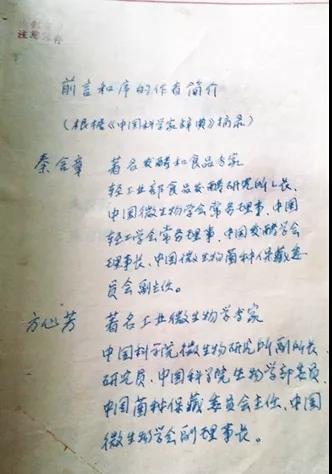 前言和序的作者简介
(根据《中国科学家辞典》摘录)
秦含章 著名发酵和食品专家
轻工业部食品发酵研究所所长、
中国微生物学会常务理事、中国
轻工学会常务理事、中国发酵学会
理事长、中国微生物菌种保藏委
员会副主任。
方心芳 著名工业微生物学专家
中国科学院微生物研究所副所长、
研究员、中国科学院生物学部委员、
中国菌种保藏委员会主任、中国
微生物学会副理事长。